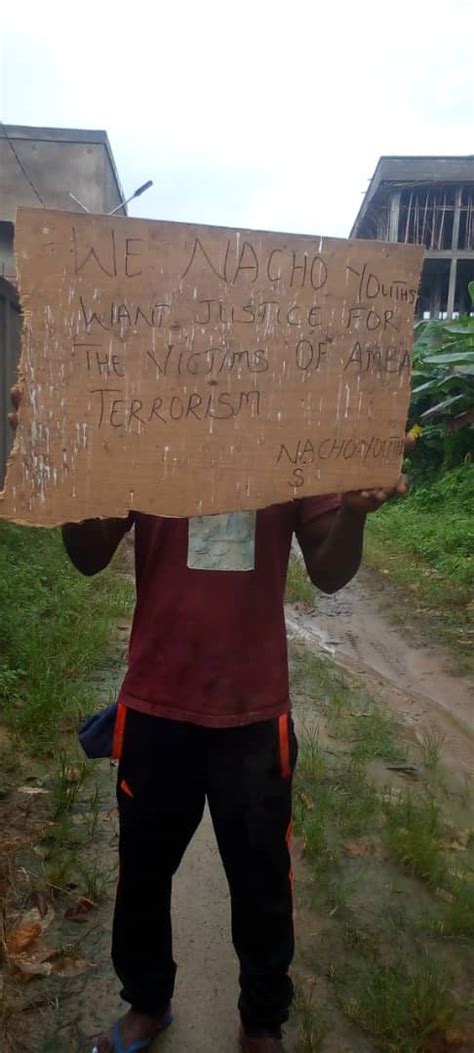 WE NACHO YOUTHS
WANT JUSTICE FOR
THE VICTIMS OF AMBA
TERRORISM
NACHO YOUTH
S